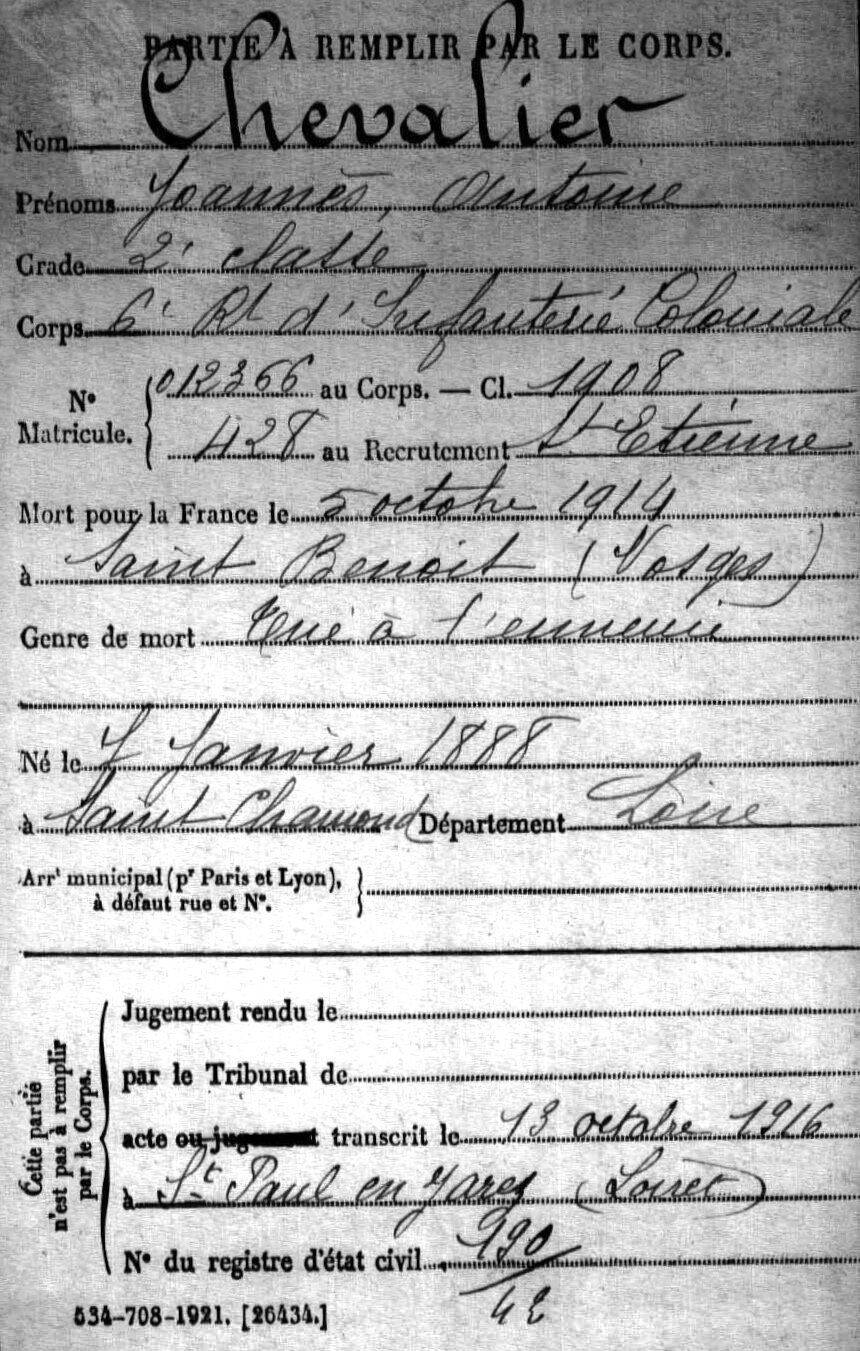 PARTIE À REMPLIR PAR LE CORPS.
Nom Chevalier
Prénoms Joannès, Antoine
Grade 2e classe
Corps 6e Rt d'Infanterie Coloniale
N° Matricule. { 012366 au Corps. — Cl. 1908
428 au Recrutement St Etienne
Mort pour la France le 5 octobre 1914
à Saint Benoit (Vosges)
Genre de mort Tué à l'ennemi
Né le 7 Janvier 1888
à Saint Chamond Département Loire
Arrt municipal (pr Paris et Lyon),
à défaut rue et N°.
Cette partie n'est pas à remplir par le Corps.
Jugement rendu le
par le Tribunal de
acte ou jugement transcrit le 13 octobre 1916
à St Paul en Jarez (Loiret)
N° du registre d'état civil 990
42
534-708-1921. [26434.]